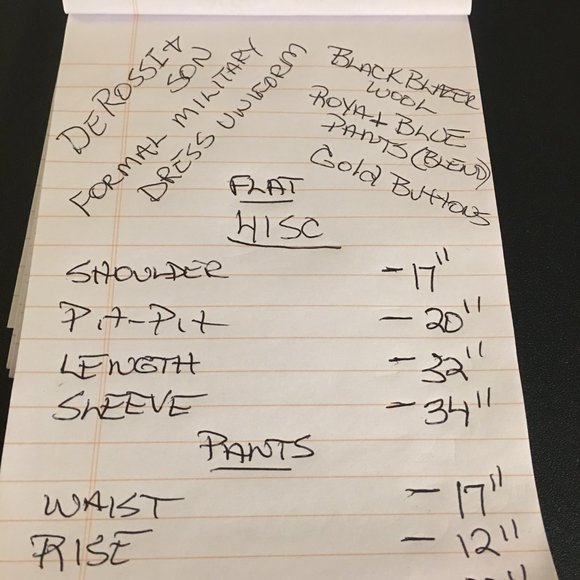 DEROSSI +
SON
FORMAL MILITARY
DRESS UNIFORM
BLACK BLAZER
WOOL
ROYAL BLUE
PANTS (BLEND)
Gold BUTTONS
FLAT
41SC
SHOULDER - 17"
Pit-Pit - 20"
LENGTH - 32"
SLEEVE - 34"
PANTS
WAIST - 17"
RISE - 12"